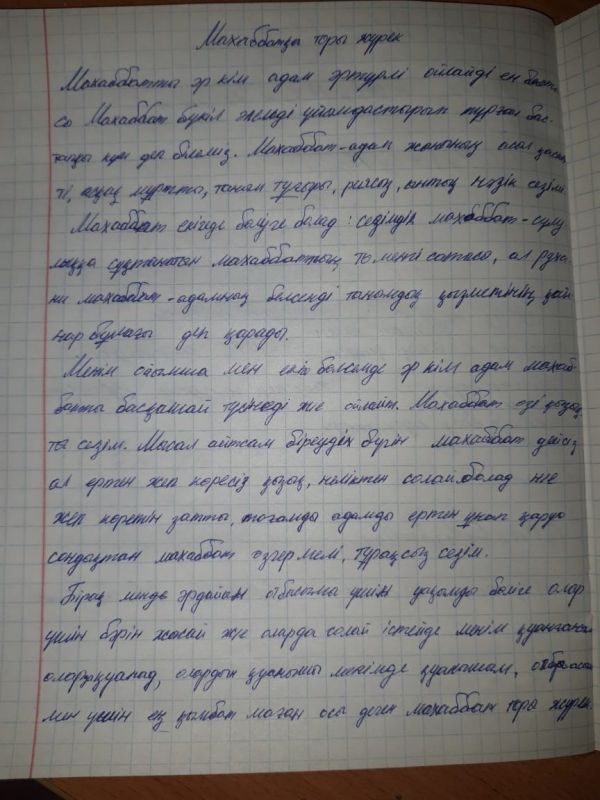 Махаббатқа толы жүрек
Махаббатты әр кім адам әртүрлі ойлайді ең баста
со Махаббат бүкіл әлемді ұйымдастырып тұрған бас-
тауы күш деп білеміз. Махаббат-адам жанының асыл қасие
ті, ақыл мұратты, таным тұғыры, рақым, ынтық нәзік сезім
Махаббат екіге бөлуге болад: сезімдік махаббат-сұлу
лыққа сұқтанатан махаббаттың төменгі сатысы, ал руха
ни махаббат-адамның белсенді танымдық қызметінің қай
нар бұлағы деп қарады.
Менің ойымша мен егер болсамда әр кім адам махаб-
батты басқашай түсінеді же ойлайт. Махаббат өзі қызық
та сезім. Мысал айтсам біреудің бүгін махаббат дейсің
ал ертен жек көресің қызық, неліктен солай болад не
жек көретін затты, тағамды адамды ертен ұнап қалуо
сондықтан махаббат өзгермелі, тұрақсыз сезім.
Бірақ менде әрдайым отбасыма үшін уақымды бөліге олар
үшін бәрін жасай же оларда солай істейде менің қуанғаным
оларғақуанад, олардын қуанышы менімде қуанышым, отбасым
мен үшін ең қымбат маған осы деген махаббат толы жүрек.